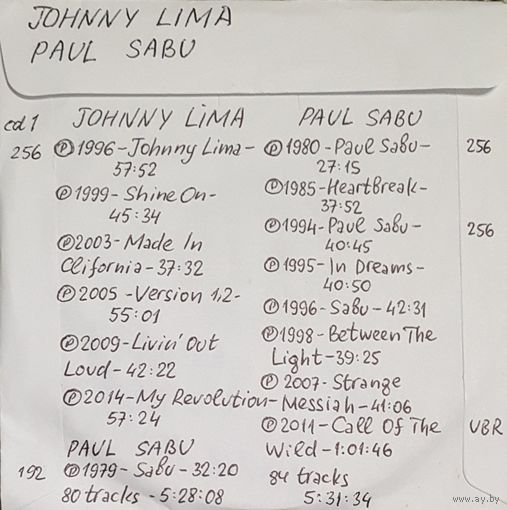 JOHNNY LIMA
PAUL SABU
cd 1
JOHNNY LIMA
256
Ⓟ1996-Johnny Lima-
57:52
Ⓟ1999-Shine On-
45:34
Ⓟ2003-Made In
Clifornia-37:32
Ⓟ2005-Version 1,2-
55:01
Ⓟ2009-Livin' Out
Loud-42:22
Ⓟ2014-My Revolution-
57:24
PAUL SABU
192
Ⓟ1979-Sabu-32:20
80 tracks-5:28:08
PAUL SABU
Ⓟ1980-Paul Sabu-
256
27:15
Ⓟ1985-Heartbreak-
37:52
Ⓟ1994-Paul Sabu-
256
40:45
Ⓟ1995-In Dreams-
40:50
Ⓟ1996-Sabu-42:31
Ⓟ1998-Between The
Light-39:25
Ⓟ2007-Strange
Messiah-41:06
Ⓟ2011-Call Of The
VBR
Wild-1:01:46
84 tracks
5:31:34
www.ay.by